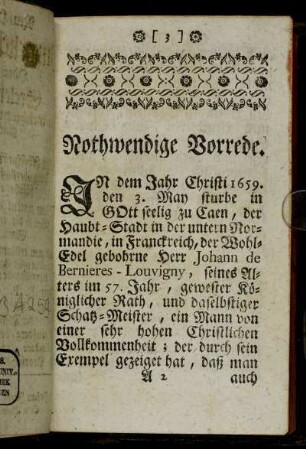 [ 3 ]
Nothwendige Vorrede.
IN dem Jahr Christi 1659.
den 3. May sturbe in
GOtt seelig zu Caen, der
Haubt-Stadt in der untern Nor-
mandie, in Franckreich, der Wohl-
Edel gebohrne Herr Johann de
Bernieres - Louvigny, seines Al-
ters im 57. Jahr, gewester Kö-
niglicher Rath, und daselbstiger
Schatz-Meister, ein Mann von
einer sehr hohen Christlichen
Vollkommenheit; der durch sein
Exempel gezeiget hat, daß man
A 2 auch